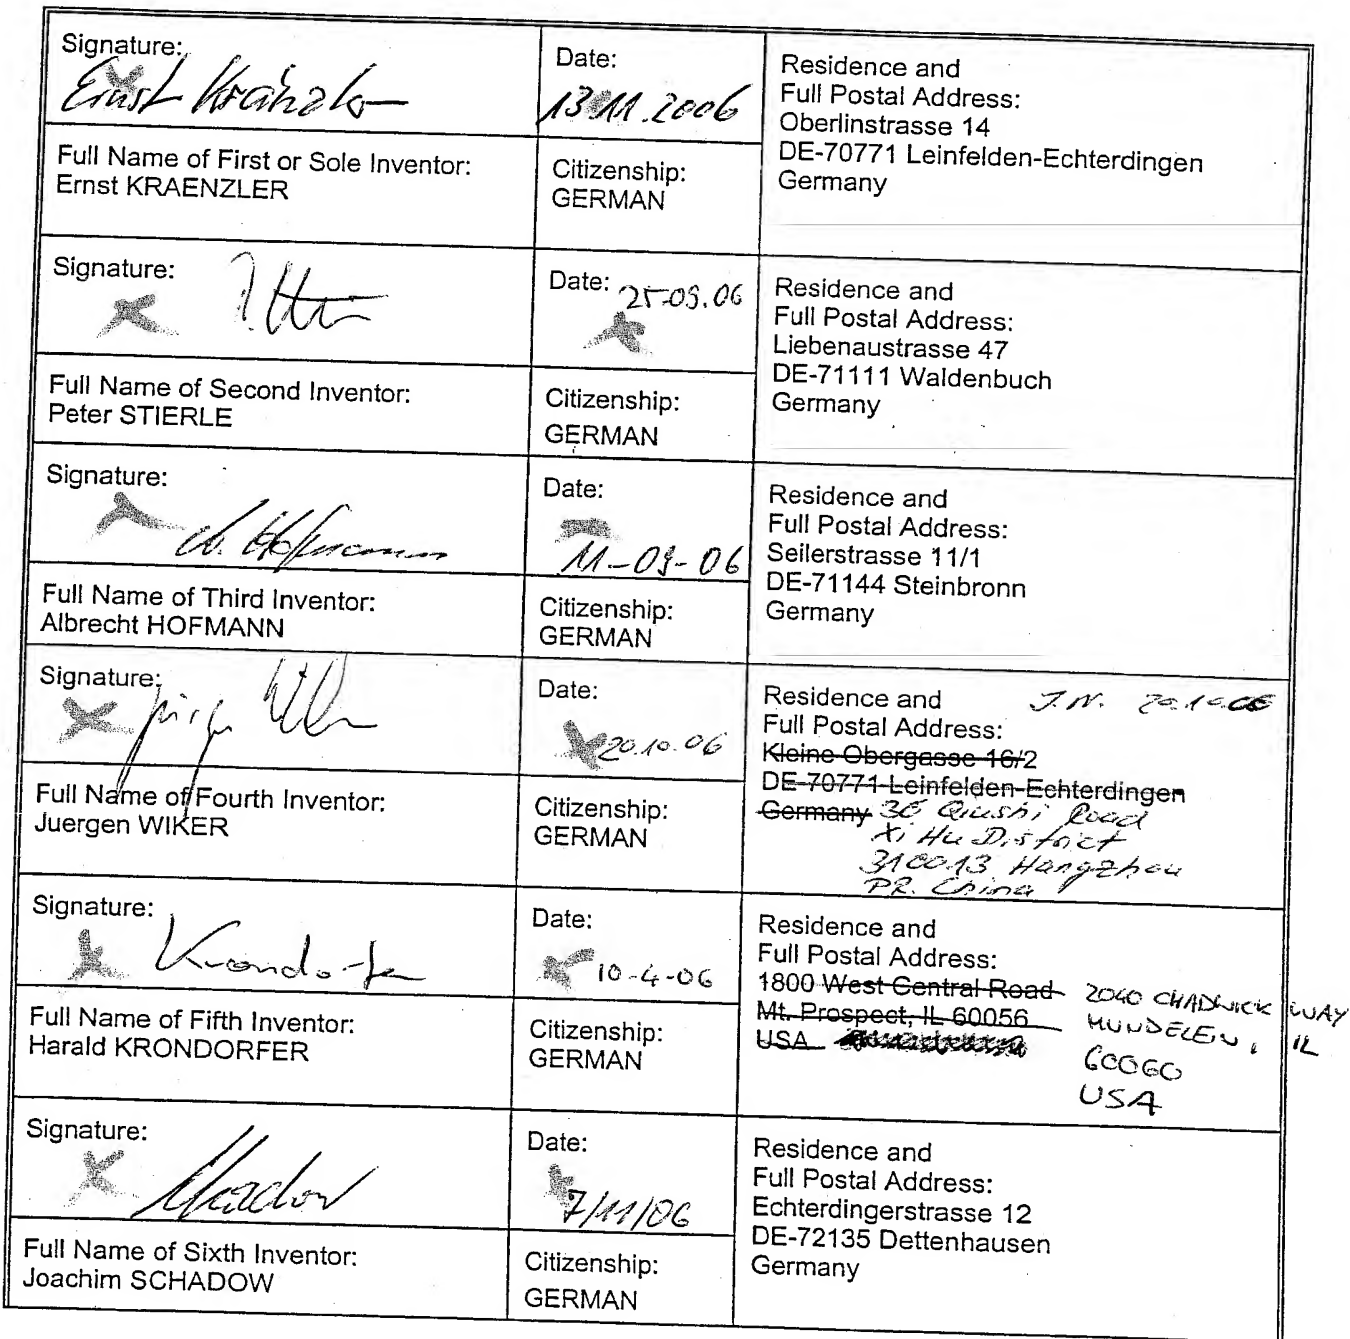 Signature:
Ernst Kränzler
Date:
13.11.2006
Residence and
Full Postal Address:
Oberlinstrasse 14
DE-70771 Leinfelden-Echterdingen
Germany
Full Name of First or Sole Inventor:
Ernst KRAENZLER
Citizenship:
GERMAN
Signature:
Date: 25-09.06
Residence and
Full Postal Address:
Liebenaustrasse 47
DE-71111 Waldenbuch
Germany
Full Name of Second Inventor:
Peter STIERLE
Citizenship:
GERMAN
Signature:
A. Hofmann
Date:
11-09-06
Residence and
Full Postal Address:
Seilerstrasse 11/1
DE-71144 Steinbronn
Germany
Full Name of Third Inventor:
Albrecht HOFMANN
Citizenship:
GERMAN
Signature:
Jürgen Wiker
Date:
20.10.06
Residence and J.W. 20.10.06
Full Postal Address:
Kleine Obergasse 16/2
DE-70771 Leinfelden-Echterdingen
Germany 36 Qiushi Road
Xi Hu District
310013 Hangzhou
PR. China
Full Name of Fourth Inventor:
Juergen WIKER
Citizenship:
GERMAN
Signature:
Krondorfer
Date:
10-4-06
Residence and
Full Postal Address:
1800 West Central Road 2040 CHADWICK WAY
Mt. Prospect, IL 60056 MUNDELEIN, IL
USA 60060
USA
Full Name of Fifth Inventor:
Harald KRONDORFER
Citizenship:
GERMAN
Signature:
Schadow
Date:
7/11/06
Residence and
Full Postal Address:
Echterdingerstrasse 12
DE-72135 Dettenhausen
Germany
Full Name of Sixth Inventor:
Joachim SCHADOW
Citizenship:
GERMAN